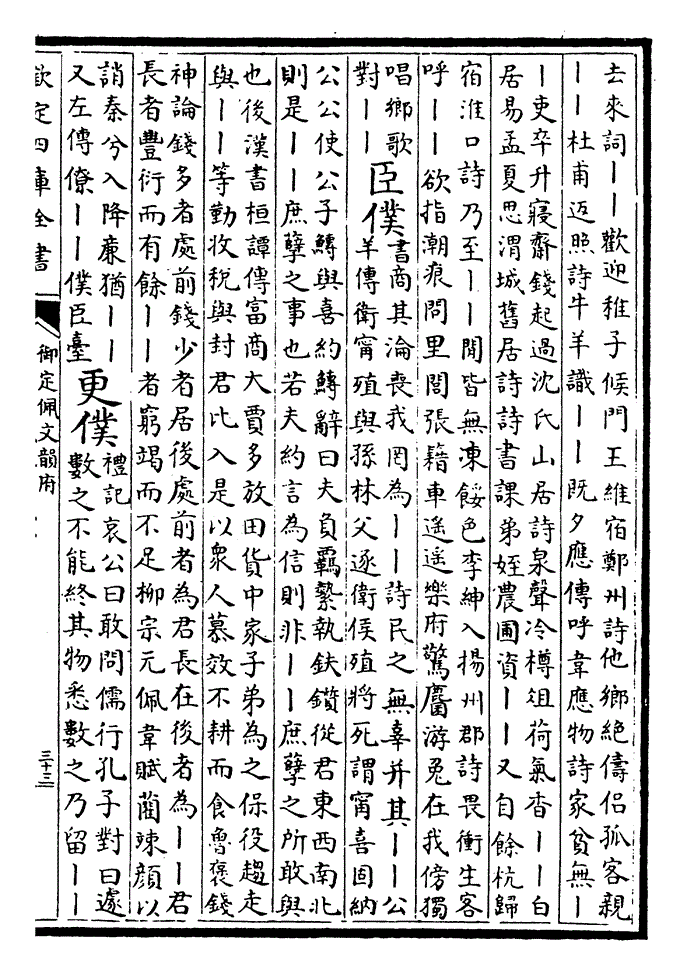 去來詞丨丨歡迎稚子候門王維宿鄭州詩他鄉絕儔侶孤客親
丨丨杜甫返照詩牛羊識丨丨既夕應傳呼韋應物詩家貧無丨
丨吏卒升寢齋錢起過沈氏山居詩泉聲冷樽俎荷氣香丨丨白
居易孟夏思渭城舊居詩詩書課弟姪農圃資丨丨又自餘杭歸
宿淮口詩乃至丨丨閒皆無凍餒色李紳入揚州郡詩畏衝生客
呼丨丨欲指潮痕問里閭張籍車遥遥樂府驚麏游兔在我傍獨
唱鄉歌
對丨丨
臣僕
書商其淪喪我罔為丨丨詩民之無辜并其丨丨公
羊傳衛甯殖與孫林父逐衛侯殖將死謂甯喜固納
公公使公子鱄與喜約鱄辭曰夫負羈縶執鈇鑕從君東西南北
則是丨丨庶孽之事也若夫約言為信則非丨丨庶孽之所敢與
也後漢書桓譚傳富商大賈多放田貨中家子弟為之保役趨走
與丨丨等勤收稅與封君比入是以衆人慕效不耕而食魯褒錢
神論錢多者處前錢少者居後處前者為君長在後者為丨丨君
長者豐衍而有餘丨丨者窮竭而不足柳宗元佩韋賦藺竦顔以
誚秦兮入降廉猶丨丨
又左傳僚丨丨僕臣臺
更僕
禮記哀公曰敢問儒行孔子對曰遽
數之不能終其物悉數之乃留丨丨
欽定四庫全書
御定佩文韻府
三十三